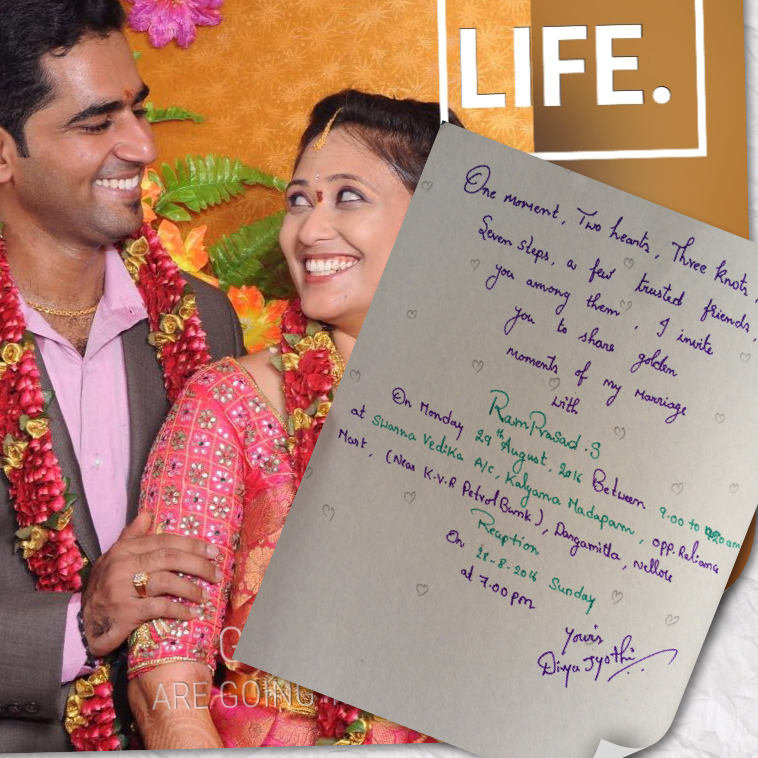 LIFE.
One moment, Two hearts, Three knots,
Seven steps, a few trusted friends,
you among them, I invite
you to share golden
moments of my marriage
with
RamPrasad.S
On Monday 29th August, 2016 Between 9.00 to
at Swarna Vedika A/c, Kalyana Madapam, opp. Reliance
Mart, (Near K.V.R Petrol Bunk), Dargamitta, Nellore
Reception
On 28-8-2016 Sunday
at 7.00 pm
Yours
Divya Jyothi
ARE GOING